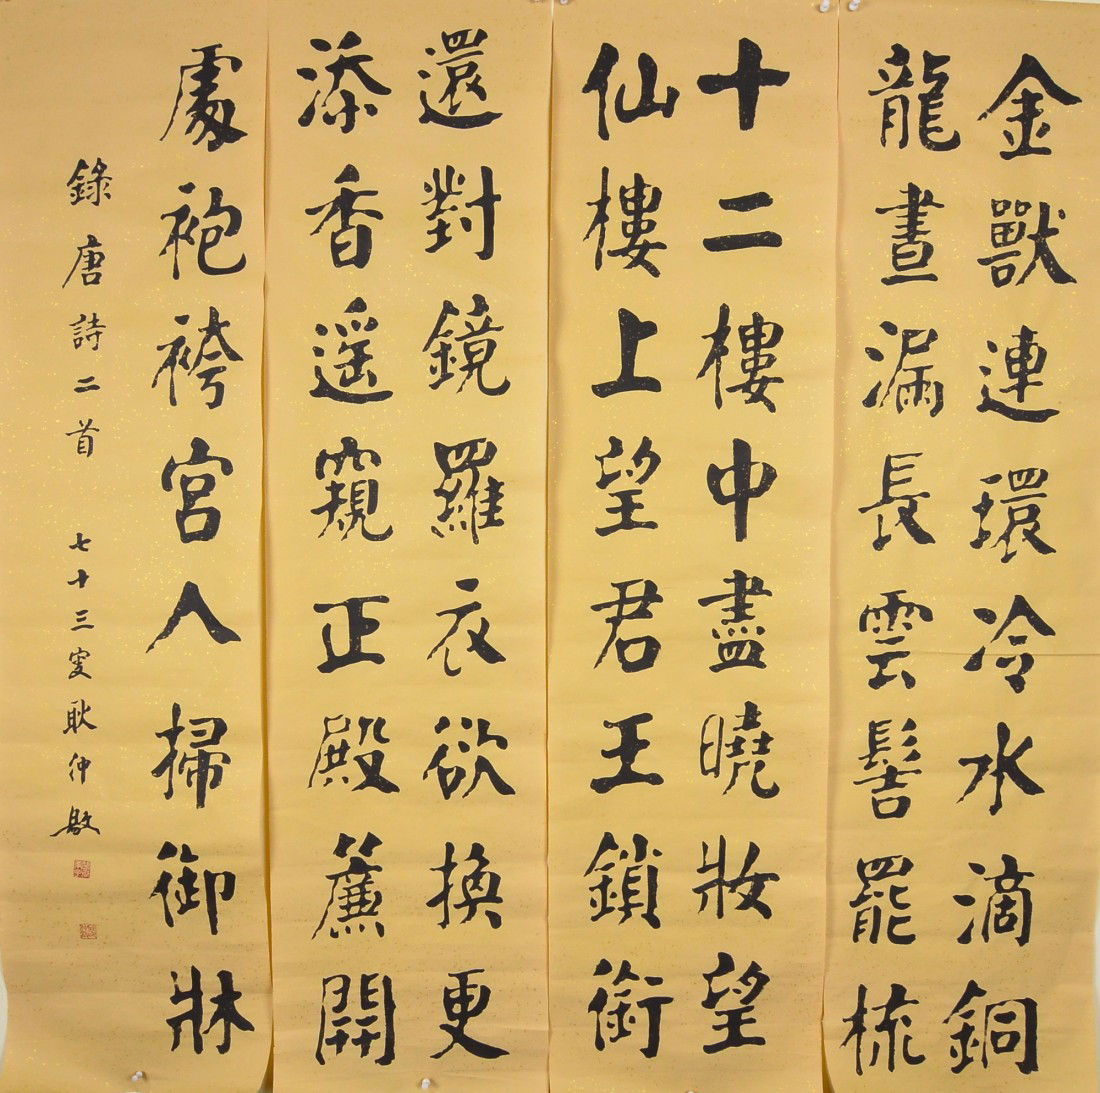 金獸連環冷水滴銅
龍晝漏長雲髻罷梳
十二樓中盡曉妝望
仙樓上望君王鎖銜
還對鏡羅衣欲換更
添香遥窺正殿簾開
處袍袴宮人掃御牀
錄唐詩二首 七十三叟耿仲敭